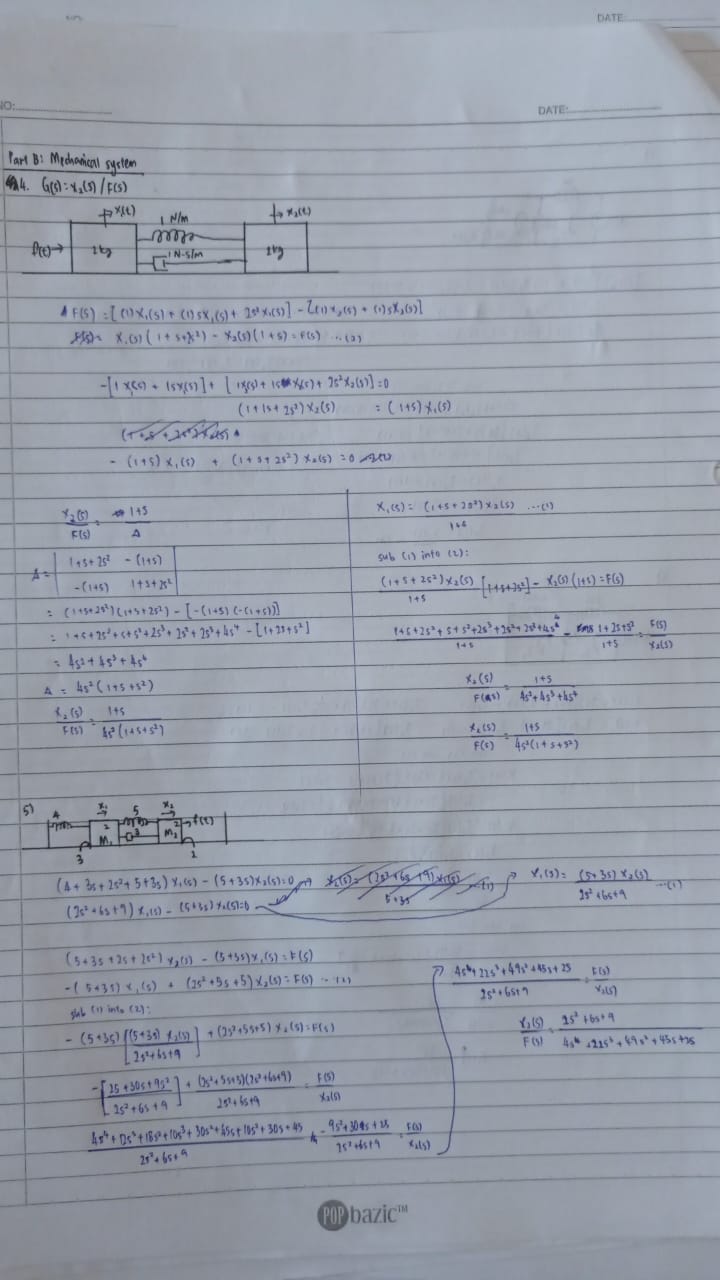 DATE:
NO:
DATE:
Part B: Mechanical system
4. G(s) = X₂(s) / F(s)
x₁(t)
1 N/m
x₂(t)
f(t) →
1 N-s/m
F(s) = [(1) X₁(s) + (1) s X₁(s) + 2s² X₁(s)] - [(1) X₂(s) + (1) s X₂(s)]
- X₂(s) (1+s) = F(s) ... (2)
(1+1s+2s²) X₂(s) = (1+s) X₁(s)
- (1+s) X₁(s) + (1+s+2s²) X₂(s) = 0
X₂(s)/F(s) = 1+s/Δ
Δ = | 1+s+2s² - (1+s) |
| -(1+s) 1+s+2s² |
= (1+s+2s²)(1+s+2s²) - [-(1+s)(-(1+s))]
= 1+s+2s²+s+s²+2s³+2s²+2s³+4s⁴ - [1+2s+s²]
= 4s²+4s³+4s⁴
Δ = 4s² (1+s+s²)
X₂(s)/F(s) = 1+s/4s² (1+s+s²)
X₁(s) = (1+s+2s²) X₂(s)/1+s ... (1)
sub (1) into (2):
(1+s+2s²) X₂(s)/1+s [1+s+2s²] - X₂(s) (1+s) = F(s)
1+s+2s²+s+s²+2s³+2s²+2s³+4s⁴/1+s - 1+2s+s²/1+s = F(s)/X₂(s)
X₂(s)/F(s) = 1+s/4s²+4s³+4s⁴
X₂(s)/F(s) = 1+s/4s²(1+s+s²)
5)
4 x₁ 5 x₂
2 3 2 f(t)
M₁ M₂
3 2
(4+3s+2s²+5+3s) X₁(s) - (5+3s) X₂(s) = 0
(2s²+6s+9) X₁(s) - (5+3s) X₂(s) = 0
X₁(s) = (5+3s) X₂(s)/2s²+6s+9 ... (1)
(5+3s+2s+2s²) X₂(s) - (5+3s) X₁(s) = F(s)
- (5+3s) X₁(s) + (2s²+5s+5) X₂(s) = F(s) ... (2)
sub (1) into (2):
- (5+3s) [(5+3s) X₂(s)/2s²+6s+9] + (2s²+5s+5) X₂(s) = F(s)
- [25+30s+9s²/2s²+6s+9] + (2s²+5s+5)(2s²+6s+9)/2s²+6s+9 = F(s)/X₂(s)
4s⁴+12s³+18s²+10s³+30s²+45s+10s²+30s+45/2s²+6s+9 - 9s²+30s+25/2s²+6s+9 = F(s)/X₂(s)
4s⁴+22s³+49s²+45s+25/2s²+6s+9 = F(s)/X₂(s)
X₂(s)/F(s) = 2s²+6s+9/4s⁴+22s³+49s²+45s+25
POP bazic™